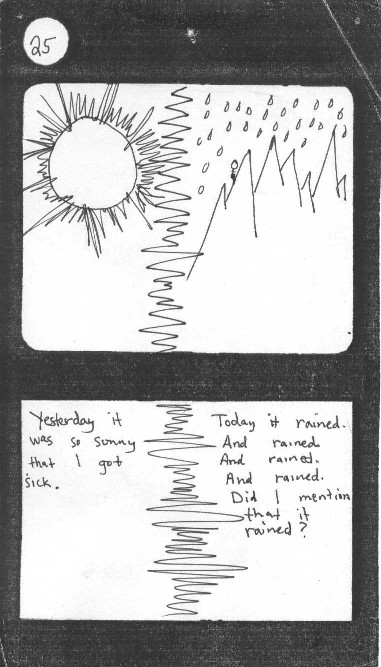 25
Yesterday it
was so sunny
that I got
sick.
Today it rained.
And rained.
And rained.
And rained.
Did I mention
that it
rained?